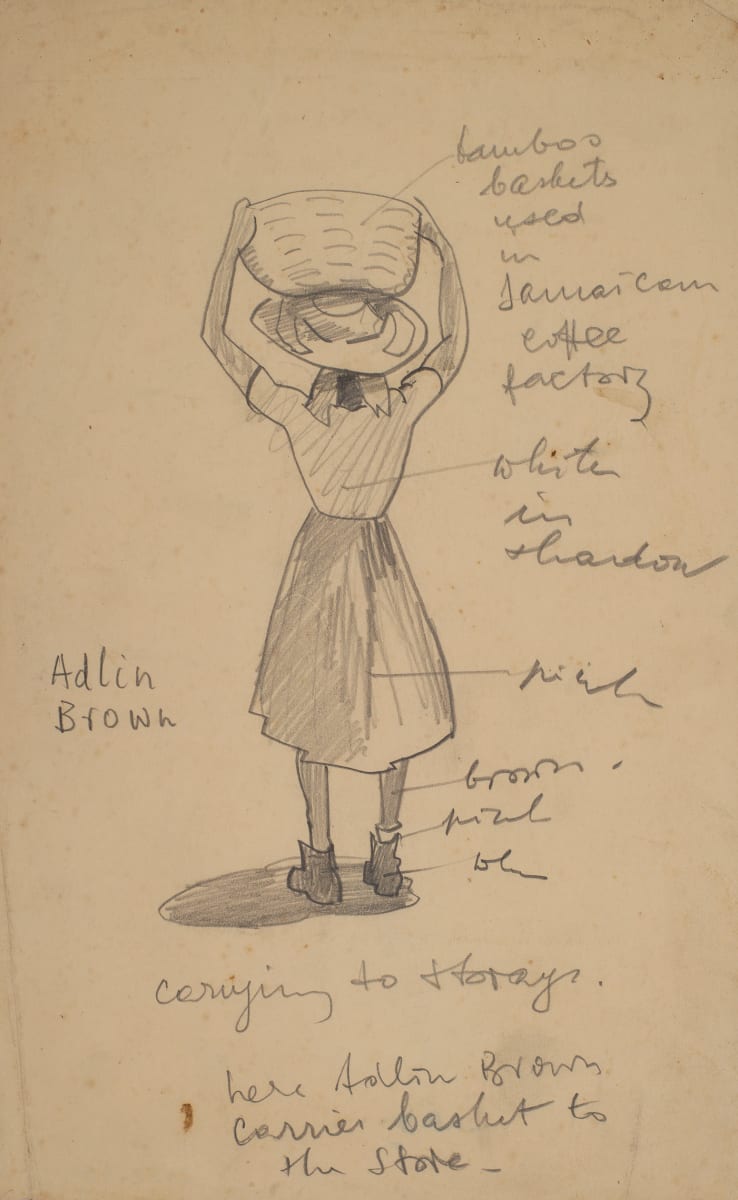 bamboo
baskets
used
in
Jamaican
coffee
factory
white
in
shadow
pink
Adlin
Brown
brown.
pink
carrying to storage.
here Adlin Brown
carries basket to
the store-